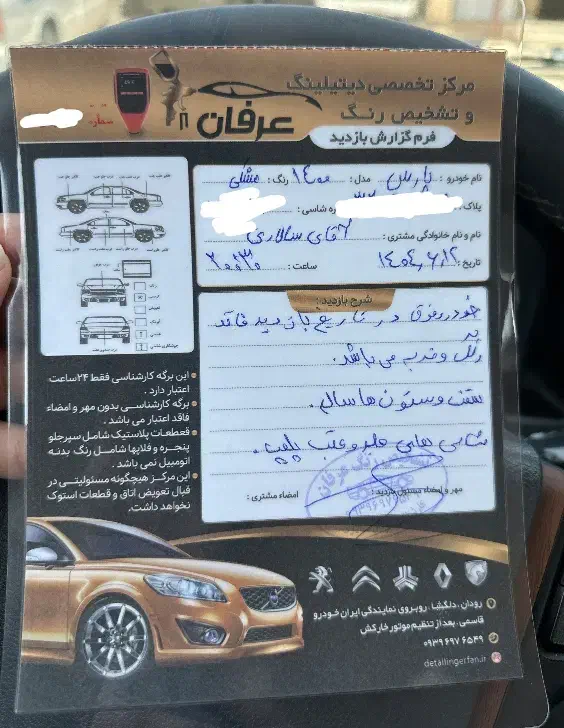 مرکز تخصصی دیتیلینگ
و تشخیص رنگ
عرفان
فرم گزارش بازدید
نام خودرو : پارس مدل : ۱۴۰۰ رنگ : مشکی
پلاک :
ره شاسی :
نام و نام خانوادگی مشتری : آقای سالاری
تاریخ : ۱۴۰۴,۶,۱۲ ساعت : ۲۰:۳۰
شرح بازدید :
خودرو فوق در تاریخ بازدید فاقد
رنگ و ضربه می باشد.
سقف و ستون ها سالم.
شاسی های جلو و عقب پلمپ.
مهر و امضاء مسئول بازدید : امضاء مشتری :
این برگه کارشناسی فقط ۲۴ ساعت
اعتبار دارد .
برگه کارشناسی بدون مهر و امضاء
فاقد اعتبار می باشد .
قعطعات پلاستیک شامل سپر جلو
پنجره و فلاپها شامل رنگ بدنه
اتومبیل نمی باشد .
این مرکز هیچگونه مسئولیتی در
قبال تعویض اتاق و قطعات استوک
نخواهد داشت.
رودان ، دلگشا ، روبروی نمایندگی ایران خودرو
قاسمی ، بعد از تنظیم موتور خارکش
۰۹۳۹ ۶۹۷ ۶۵۴۹
detailingerfan.ir